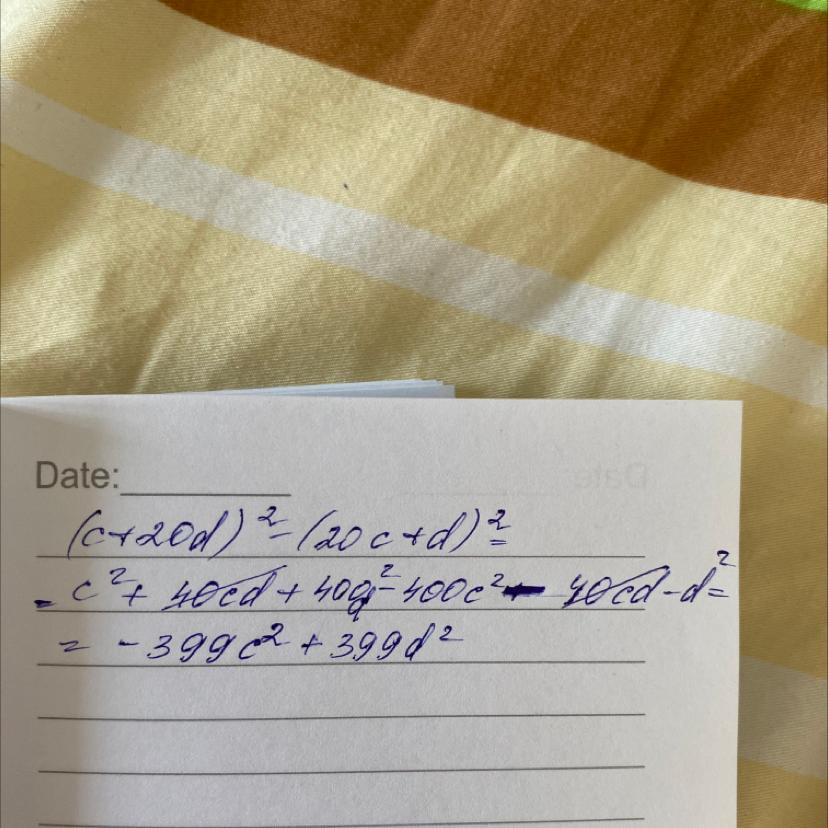 Date:
(c+20d)²-(20c+d)²=
= c²+ 40cd + 400d²-400c² - 40cd - d²=
= -399c² + 399d²